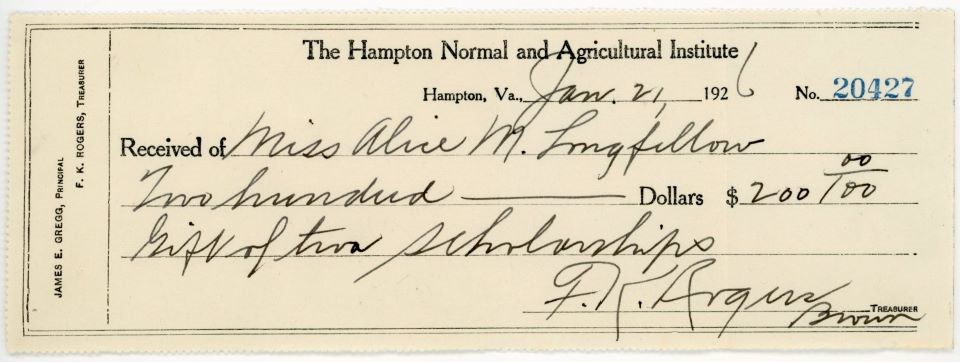 The Hampton Normal and Agricultural Institute
Hampton, Va., Jan. 21, 1926 No. 20427
Received of Miss Alice M. Longfellow
Two hundred Dollars $ 200 00/100
Gift of two scholarships
F. K. Rogers
TREASURER
Brown
JAMES E. GREGG, PRINCIPAL
F. K. ROGERS, TREASURER